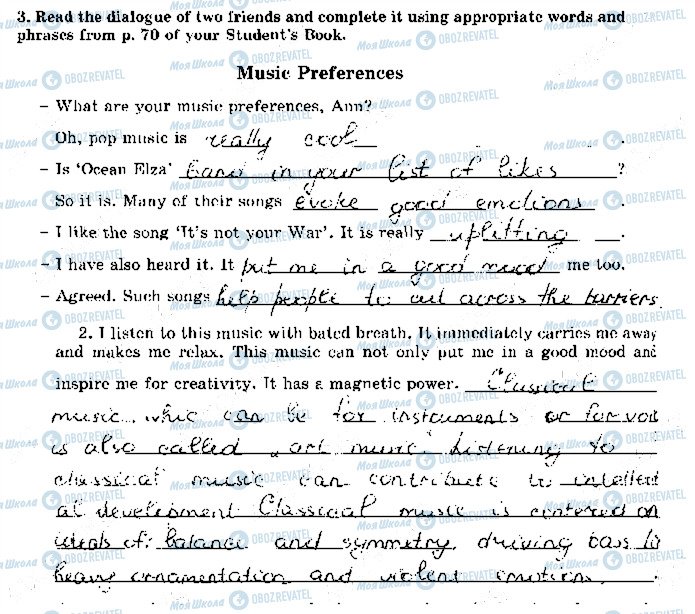 3. Read the dialogue of two friends and complete it using appropriate words and
phrases from p. 70 of your Student's Book.
Music Preferences
– What are your music preferences, Ann?
Oh, pop music is really cool.
– Is 'Ocean Elza' band in your list of likes?
So it is. Many of their songs evoke good emotions.
– I like the song 'It's not your War'. It is really uplifting.
– I have also heard it. It put me in a good mood me too.
– Agreed. Such songs help people to cut across the barriers
2. I listen to this music with bated breath. It immediately carries me away
and makes me relax. This music can not only put me in a good mood and
inspire me for creativity. It has a magnetic power. Classical
music, whic can be for instuments or for voit
is also called „art music. Listening to
classical music can contribute to intellect
al development Classical music is centered on
ideals of: balance and symmetry, driving bass to
heavy ornamentation and violent emotion.